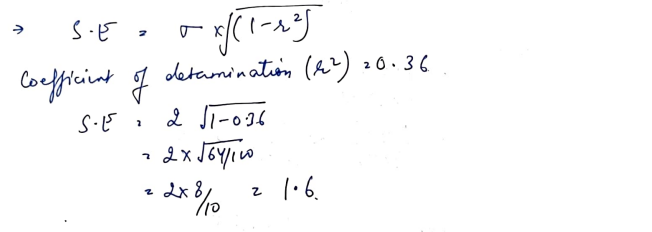 → S.E = σ x √(1-r²)
Coefficient of detarmination (r²) = 0.36
S.E = 2 √1-0.36
= 2 x √64/100
= 2x8/10 = 1.6.